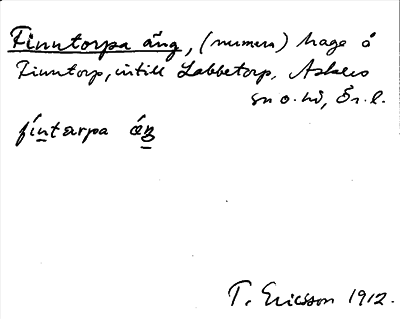 Finntorpa äng, (numera) hage å
Finntorp, intill Labbetorp, Askers
sn o. hd, Ör. l.
fíntarpa ǽŋ
T. Ericsson 1912.